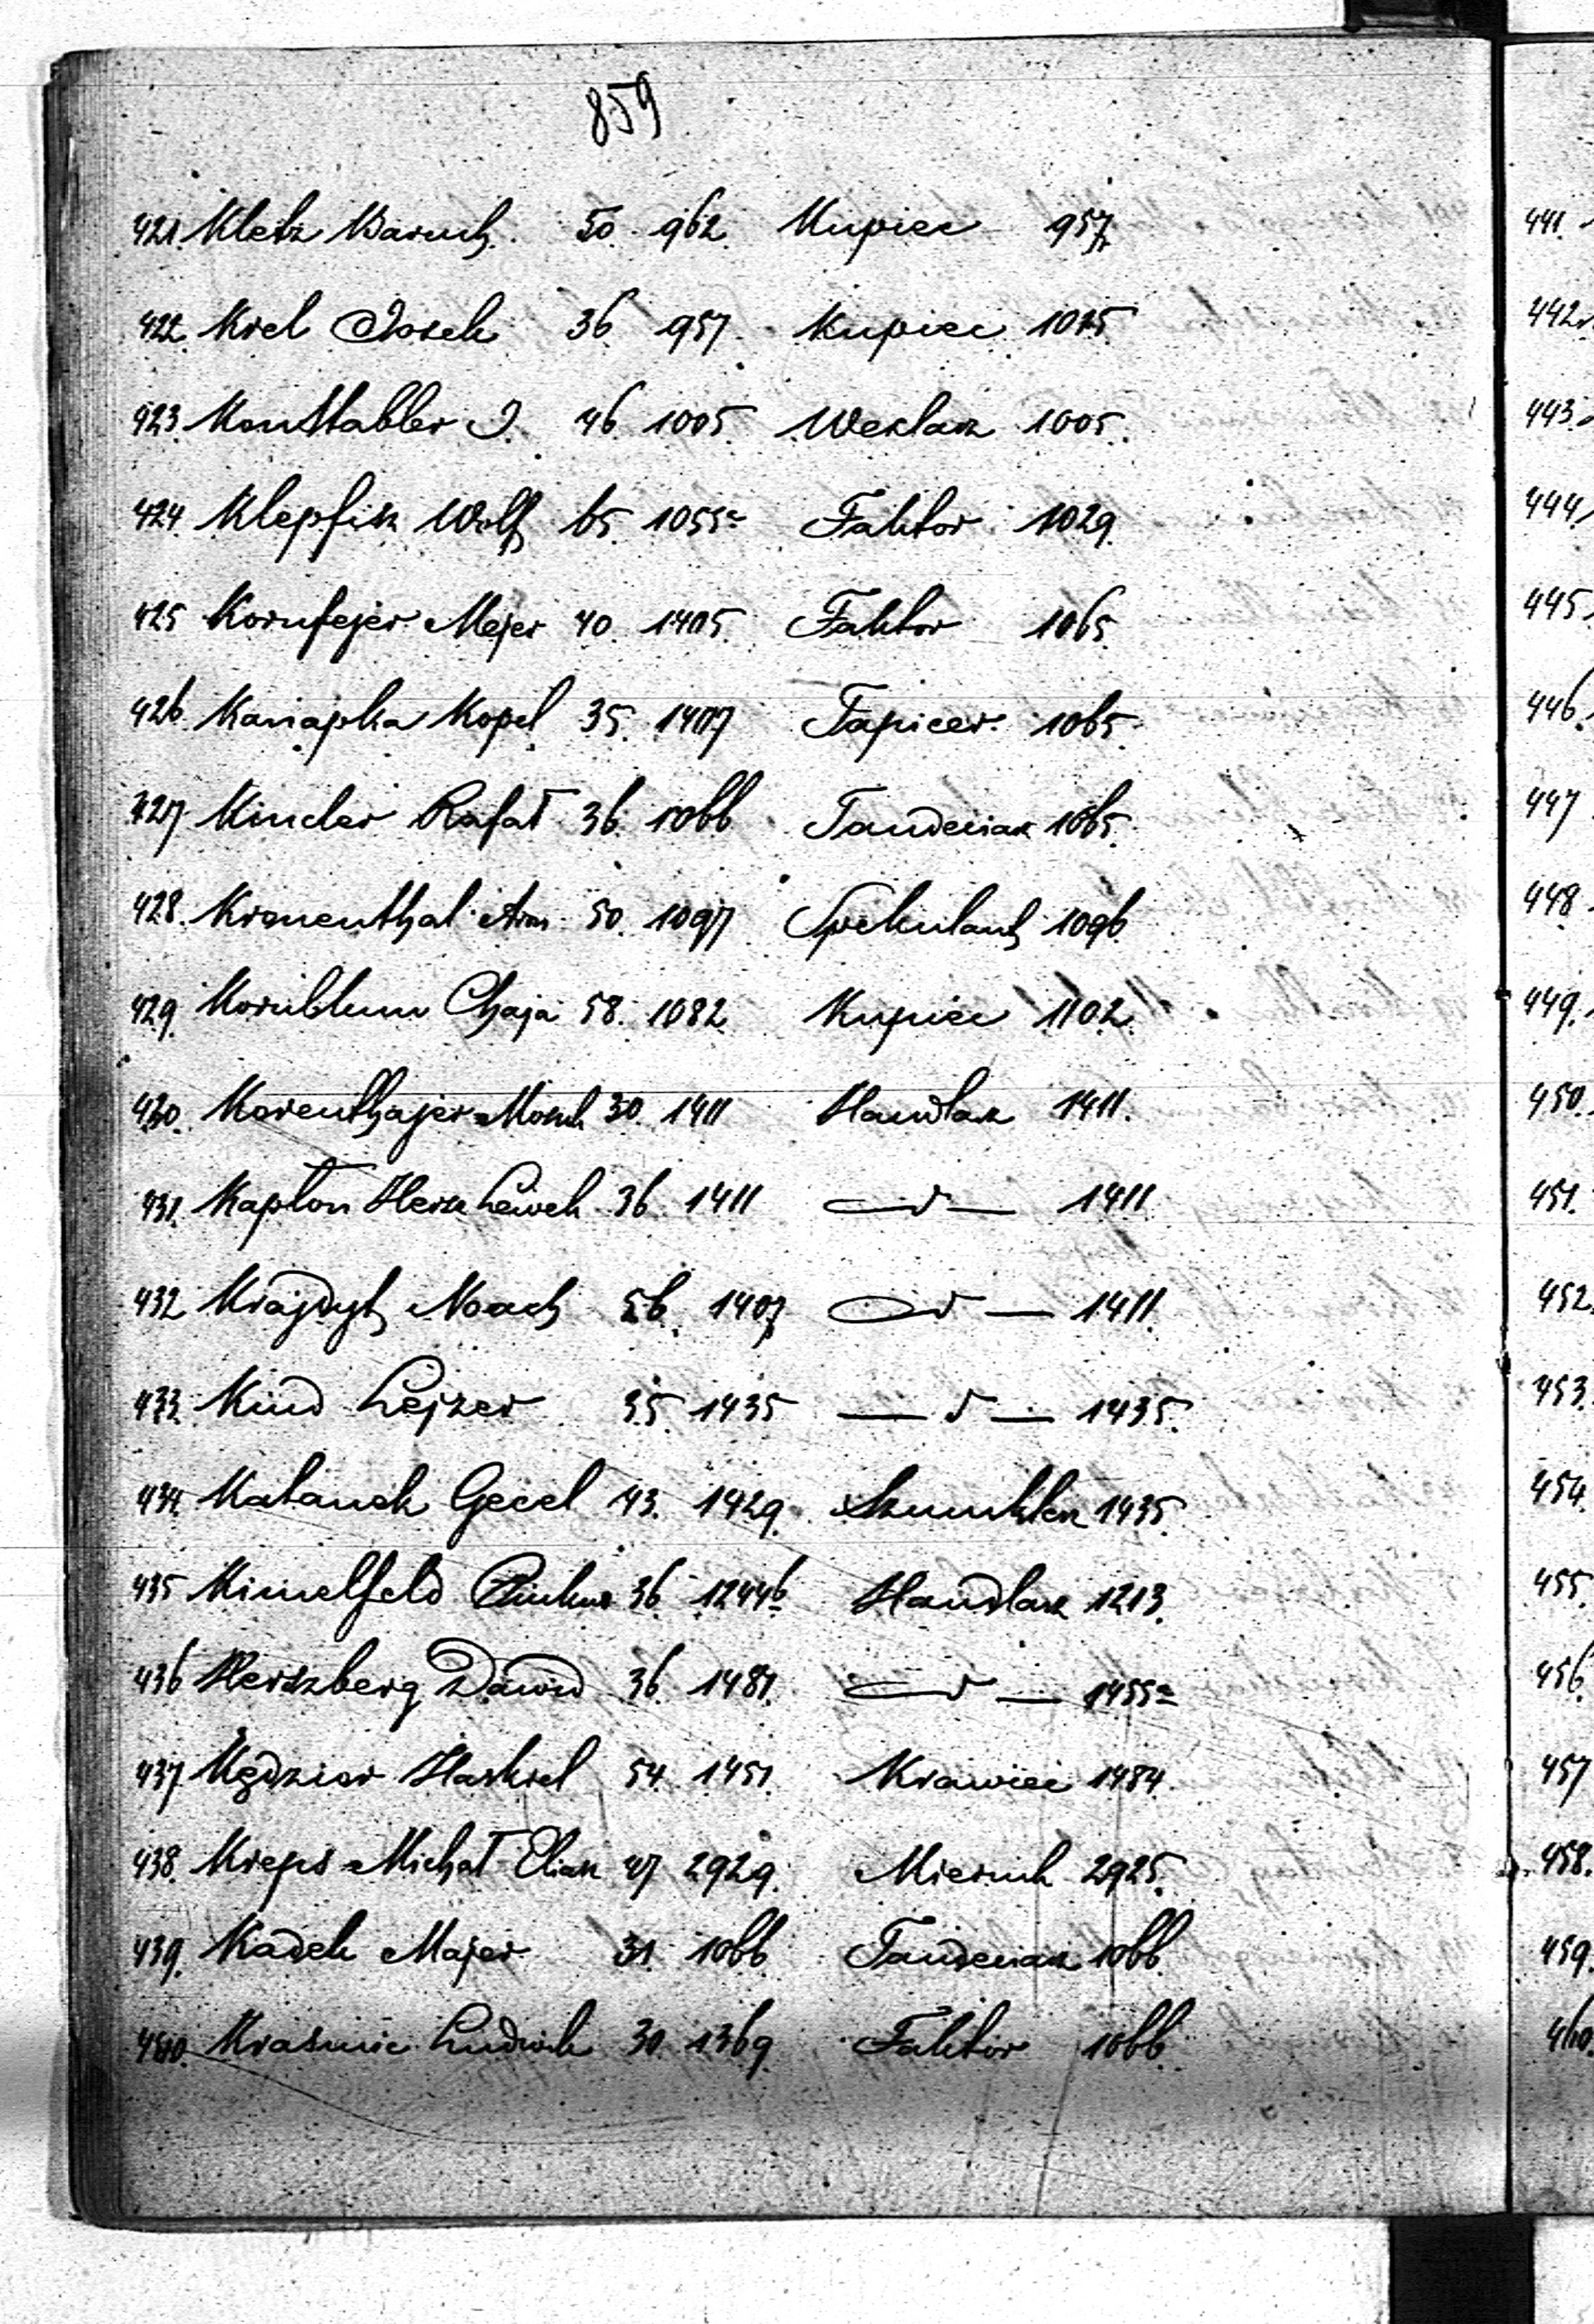 859
421. Kletz Baruch. 50. 962. Kupiec 957
422. Kiel Josek 36. 957. Kupiec 1025
423. Konstabler I. 46. 1005. Wexlarz 1005.
424. Klepfisz Wolf 65. 1055a Faktor 1029.
425 Kornfejer Mejer 40. 1405. Faktor 1065.
426. Kanapka Kopel 35. 1407 Tapicer 1065.
427. Kinder Rafał 36. 1066 Tandeciarz 1065.
428. Kronenthal Aron 50. 1097 Spekulant 1096.
429. Kornblum Chaja 58. 1082. Kupiec 1102.
430. Korenthajer Mosch 30. 1411 Handlarz 1411.
431. Kapłon Hersz Lewek 36. 1411 — d — 1411
432 Krajdych Noach 56. 1407 — d — 1411.
433. Kind Lejzer 35. 1435 — d — 1435.
434. Katanek Gecel 43. 1429. Szmuklerz 1435.
435 Kimelfeld Pinkus 36. 1244b Handlarz 1213.
436 Herszberg Dawid 36. 1481. — d — 1455a
437 Kędzior Haskiel 54. 1451. Krawiec 1484.
438. Kreps Michał Eliasz 47 2929. Miernik 2925.
439. Kadek Majer 31. 1066 Tandeciarz 1066.
440. Krasnic Ludwik 30. 1369. Faktor 1066.
441.
442.
443.
444
445.
446.
447
448.
449.
450.
451.
452.
453.
454.
455.
456.
457
458.
459.
460.